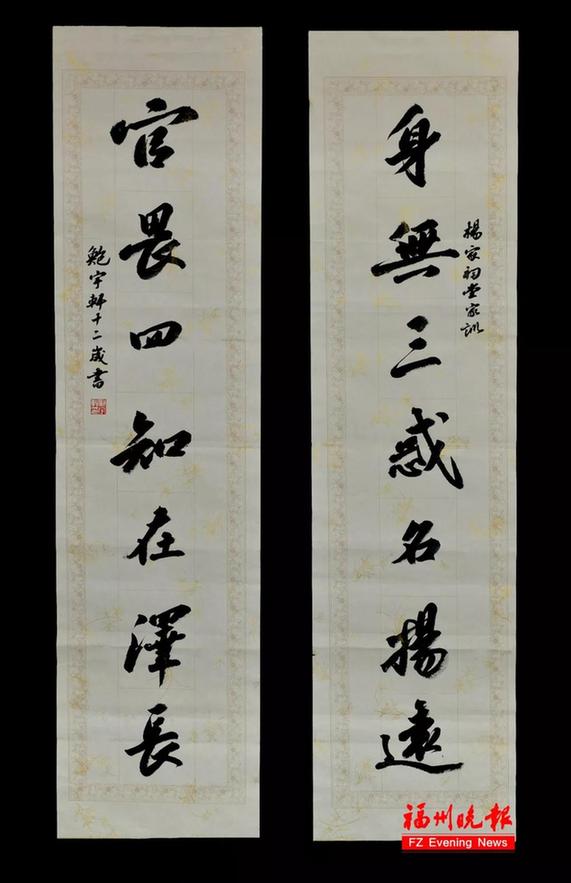 身無三惑名揚遠
楊家祠堂家訓
官畏四知在澤長
鮑宇軒十二歲書
福州晚報
FZ Evening News